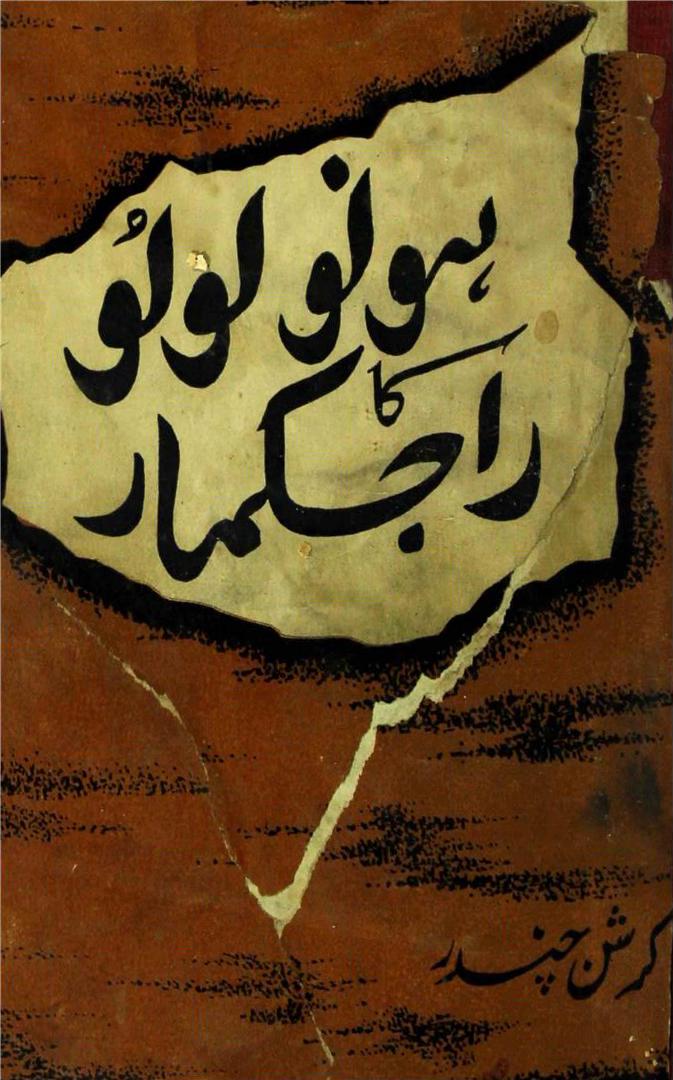 ہونولولُو
کا
راجکمار
کرشن چندر